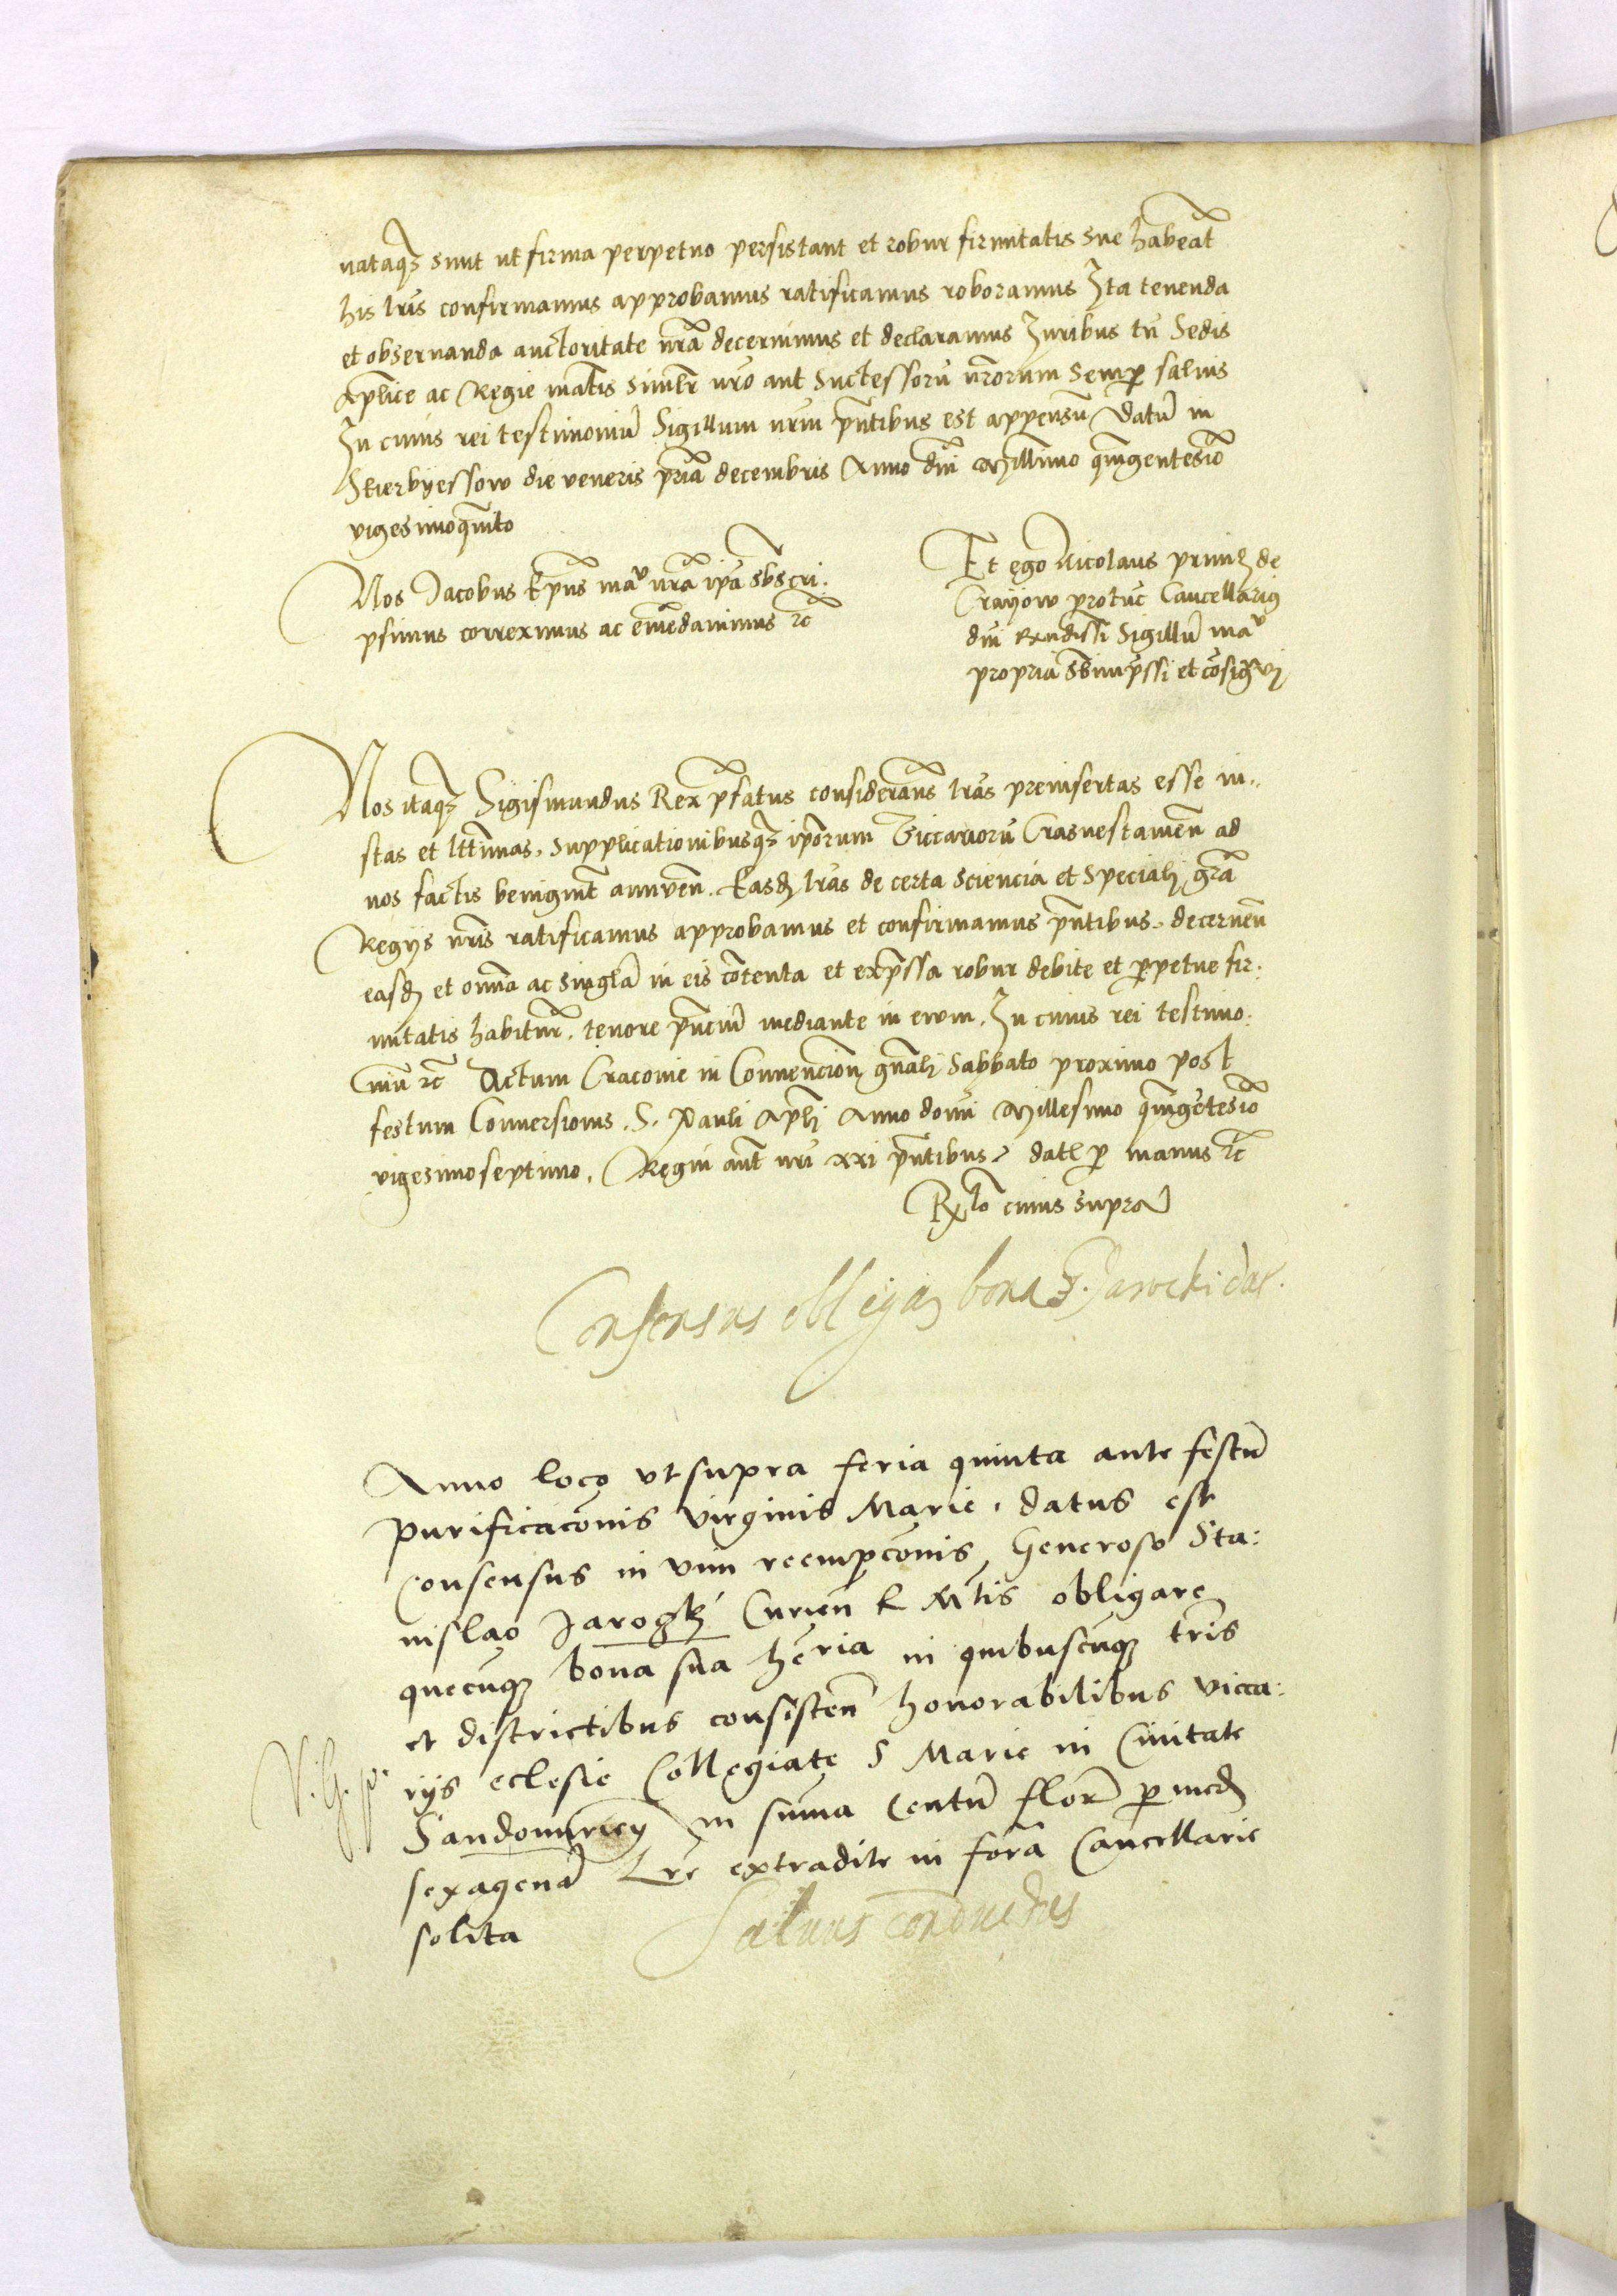 nataq3 sunt ut firma perpetuo persistant et robur firmitatis sue habeāt
his lr̄is confirmamus approbamus ratificamus roboramus Ita tenenda
et observanda auctoritate nr̄a decernimus et declaramus Iuribus tn̄ Sedis
Ap̄lice ac Regie mātis similr̄ nr̄o aut Successorū nr̄orum semp salvis
In cuius rei testimoniū Sigillum nr̄m pn̄tibus est appensū Datū in
Skierbyessow die veneris prīa decembris Anno dn̄i Millimo q̄ingentesīo
vigesimoq̄into
Nos Jacobus Ep̄us māu nr̄a ip̄a sb̄scri.
psimus correximus ac emēdavimus rc̄
Et ego Nicolaus de
Crayow protūc Cancellarig
dn̄i Rxndissi Sigillū māu
propriā sb̄imp̄ssi et cōsig̅vi
Nos itaq3 Sigismundus Rex p̄fatus considerāns lr̄as preinsertas esse iu..
stas et ltt̄imas, supplicationibusq3 ip̄orum Viccariorū Crasnestamēn ad
nos factis benignīt annuēn. Easd lr̄as de certa sciencia et speciali gr̄a
Regijs nr̄is ratificamus approbamus et confirmamus pn̄tibus. decernēn
easd et om̄ia ac singl̄a in eis cōtenta et exp̄ssa robur debite et ppetue fir:
mitatis habitur̄. tenore pn̄cīu mediante in ewm. In cuius rei testimo:
niū rc̄ Actum Cracovie in Convencion gn̄ali Sabbato proximo post
festum Conversionis. S. Pauli Ap̄li Anno domi Millesimo q̄ingētesīo
vigesimoseptimo, Regni aūt nr̄i xxi pn̄tibus dat p manus rc̄
Rx̄lo cuius supra
Consensus obligan bona S. Jarocki dat.
Anno loco ut supra feria quinta ante festū
purificacōnis virginis Marie. datus est
consensus in vim reempcōnis Generoso Sta:
nislao Jarogki Curien R Mtis obligare
quecūq bona sua hēria in quibuscūq tr̄is
et districtibus consistēn honorabilibus vicca:
rijs eclesie Collegiate S Marie in Civitate
V. G. p.
Sandomirien in sūma Centū flor̄ p med
sexagenā Lr̄e extradite in forā Cancellarie
solita
Salvus conductus